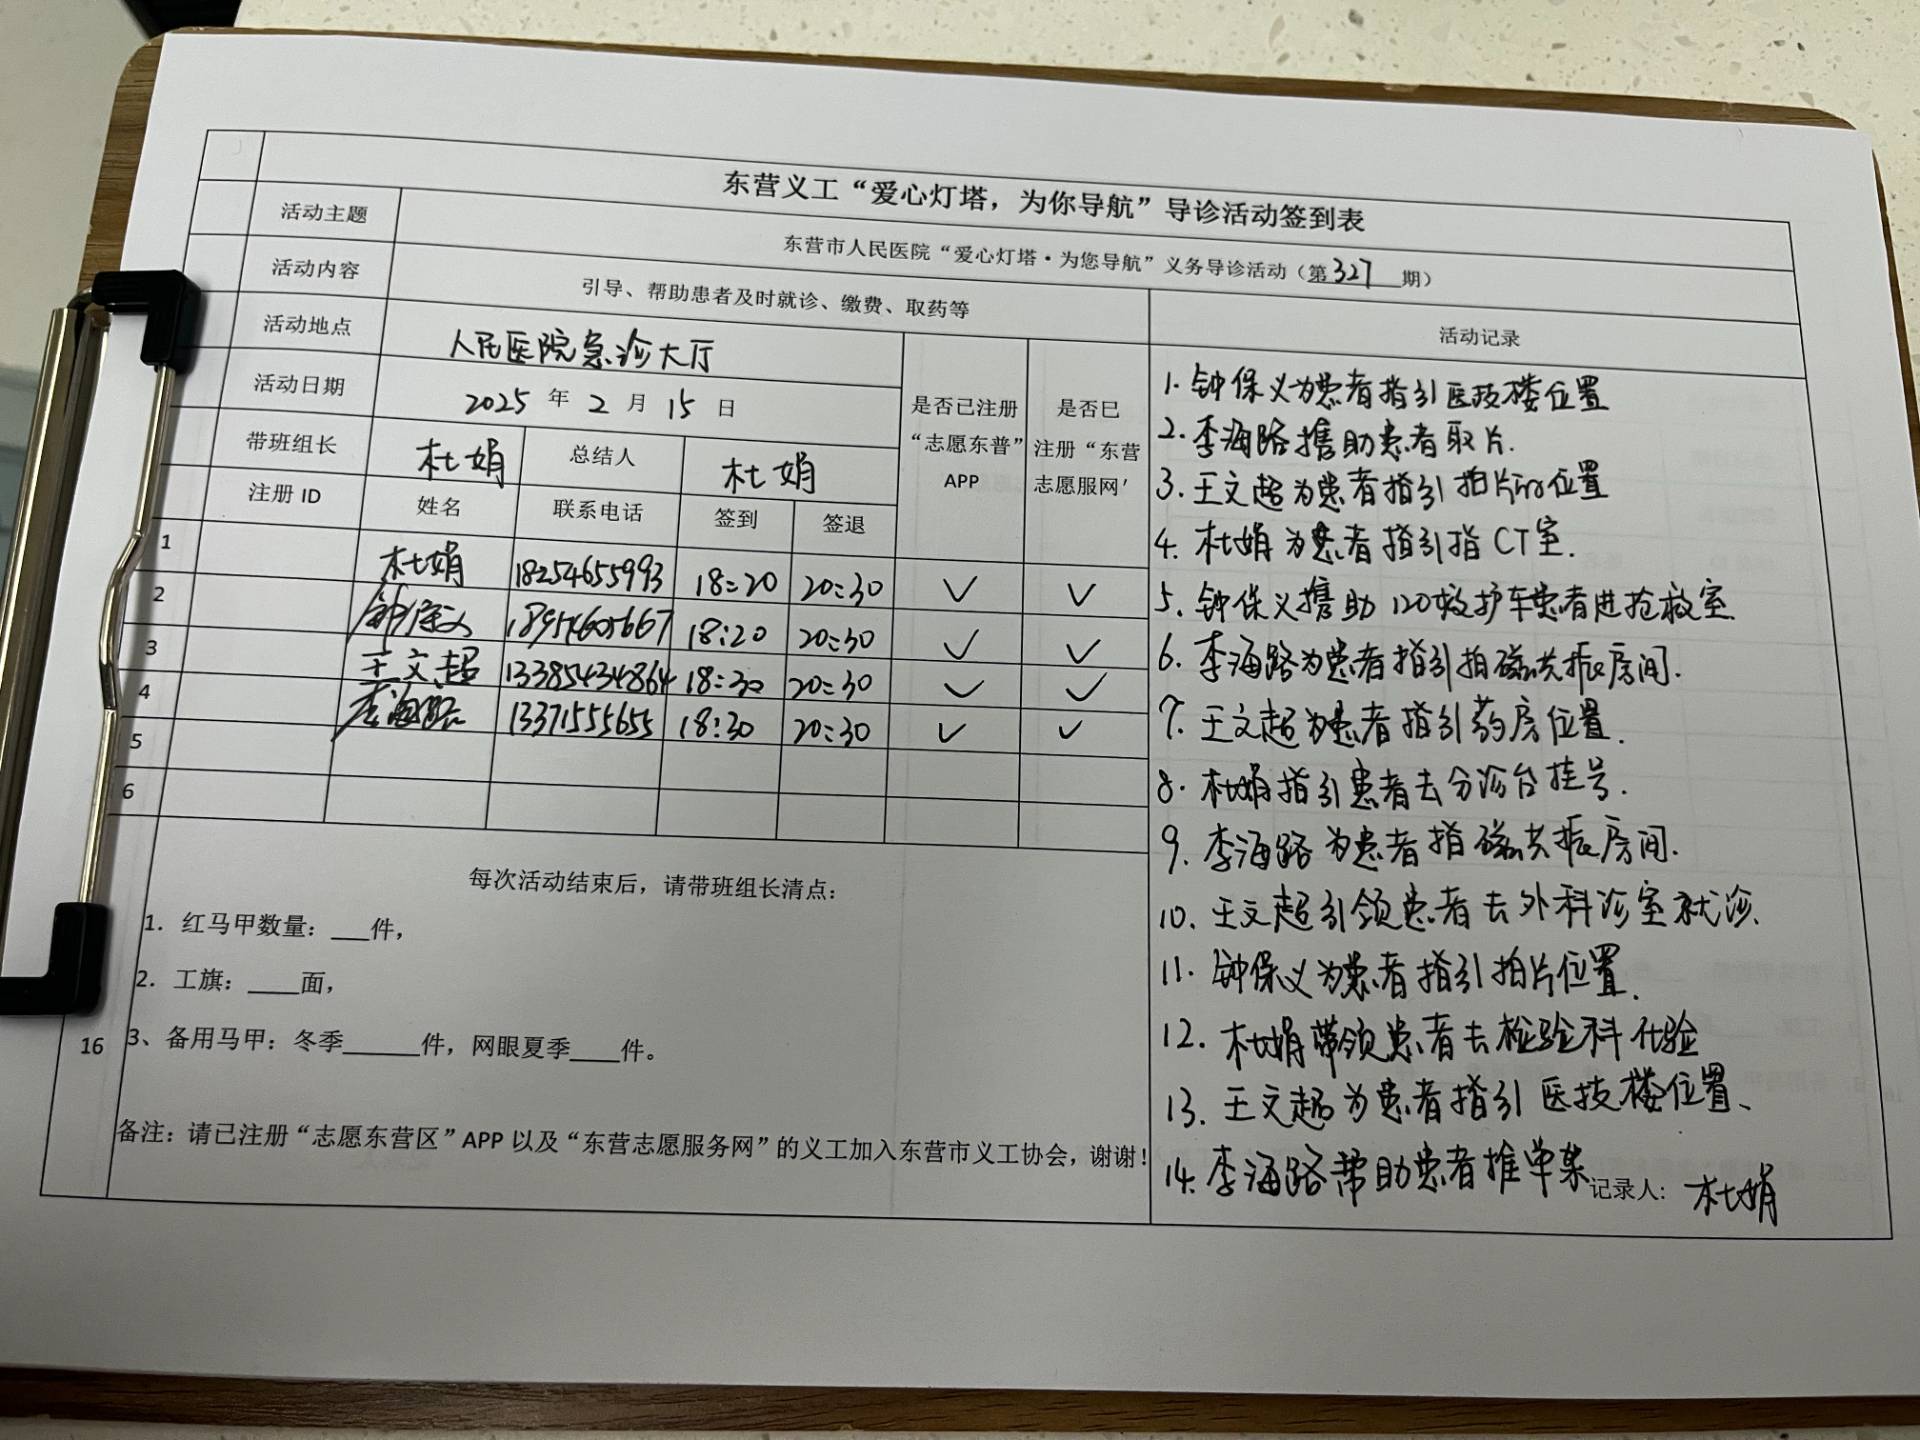 东营义工“爱心灯塔，为你导航”导诊活动签到表
活动主题 东营市人民医院“爱心灯塔·为您导航”义务导诊活动（第327期）
活动内容 引导、帮助患者及时就诊、缴费、取药等
活动地点 人民医院急诊大厅
活动日期 2025年2月15日
带班组长 杜娟 总结人 杜娟
是否已注册“志愿东普”APP
是否已注册“东营志愿服网’
注册ID 姓名 联系电话 签到 签退
1 杜娟 18254655993 18:20 20:30 ✓ ✓
2 钟保义 18:20 20:30 ✓ ✓
3 王文超 13385434864 18:30 20:30 ✓ ✓
4 李海路 13371555655 18:30 20:30 ✓ ✓
5
6
每次活动结束后，请带班组长清点：
1. 红马甲数量：___件，
2. 工旗：____面，
3、备用马甲：冬季______件，网眼夏季____件。
16
备注：请已注册“志愿东营区”APP以及“东营志愿服务网”的义工加入东营市义工协会，谢谢！
活动记录
1. 钟保义为患者指引医技楼位置
2. 李海路携助患者取片.
3. 王文超为患者指引拍片的位置
4. 杜娟为患者指引指CT室.
5. 钟保义携助120救护车患者进抢救室
6. 李海路为患者指引拍磁共振房间.
7. 王文超为患者指引药房位置.
8. 杜娟指引患者去分诊台挂号.
9. 李海路为患者指磁共振房间.
10. 王文超引领患者去外科诊室就诊.
11. 钟保义为患者指引拍片位置.
12. 杜娟带领患者去检验科化验
13. 王文超为患者指引医技楼位置、
14. 李海路帮助患者推单架
记录人: 杜娟